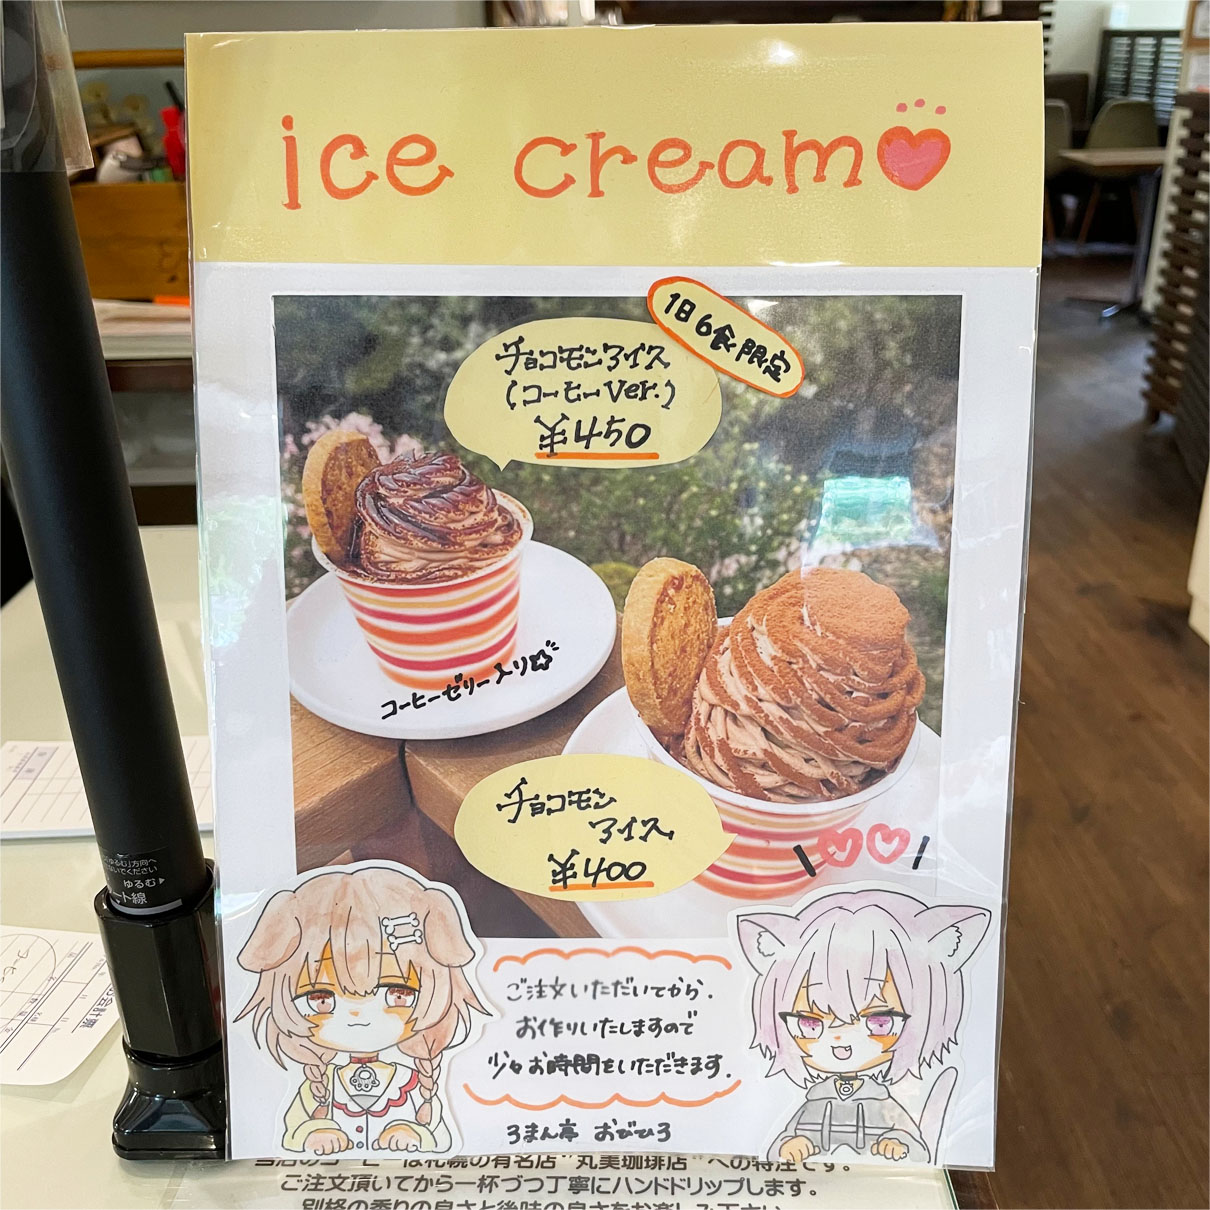 ice cream
1日6食限定
チョコモンアイス
(コーヒーVer.)
¥450
コーヒーゼリー入り
チョコモン
アイス
¥400
ご注文いただいてから、
お作りいたしますので
少々お時間をいただきます。
ろまん亭 おびひろ
当店のコーヒーは札幌の有名店"丸美珈琲店"への特注です。
ご注文頂いてから一杯づつ丁寧にハンドドリップします。
別格の香りの良さと後味の良さをお楽しみ下さい
ゆるむ
ート線